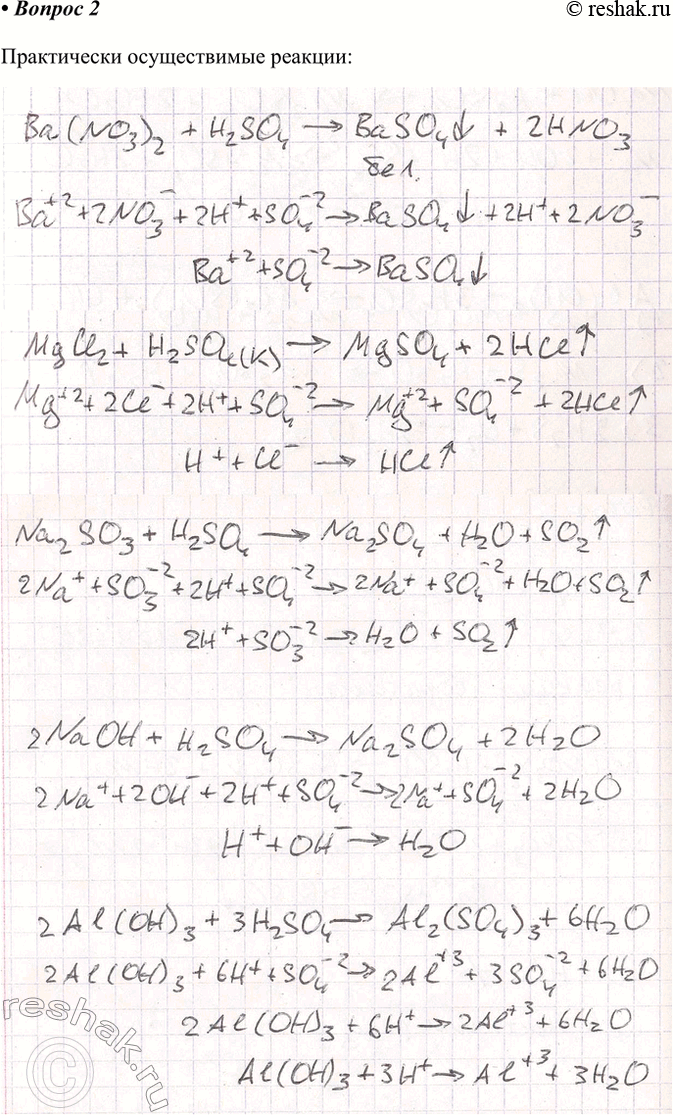 • Вопрос 2
© reshak.ru
Практически осуществимые реакции:
Ba(NO₃)₂ + H₂SO₄ → BaSO₄↓ + 2HNO₃
бел.
Ba⁺² + 2NO₃⁻ + 2H⁺ + SO₄⁻² → BaSO₄↓ + 2H⁺ + 2NO₃⁻
Ba⁺² + SO₄⁻² → BaSO₄↓
MgCl₂ + H₂SO₄(К) → MgSO₄ + 2HCl↑
Mg⁺² + 2Cl⁻ + 2H⁺ + SO₄⁻² → Mg⁺² + SO₄⁻² + 2HCl↑
H⁺ + Cl⁻ → HCl↑
Na₂SO₃ + H₂SO₄ → Na₂SO₄ + H₂O + SO₂↑
2Na⁺ + SO₃⁻² + 2H⁺ + SO₄⁻² → 2Na⁺ + SO₄⁻² + H₂O + SO₂↑
2H⁺ + SO₃⁻² → H₂O + SO₂↑
2NaOH + H₂SO₄ → Na₂SO₄ + 2H₂O
2Na⁺ + 2OH⁻ + 2H⁺ + SO₄⁻² → 2Na⁺ + SO₄⁻² + 2H₂O
H⁺ + OH⁻ → H₂O
2Al(OH)₃ + 3H₂SO₄ → Al₂(SO₄)₃ + 6H₂O
2Al(OH)₃ + 6H⁺ + SO₄⁻² → 2Al⁺³ + 3SO₄⁻² + 6H₂O
2Al(OH)₃ + 6H⁺ → 2Al⁺³ + 6H₂O
Al(OH)₃ + 3H⁺ → Al⁺³ + 3H₂O
reshak.ru
©